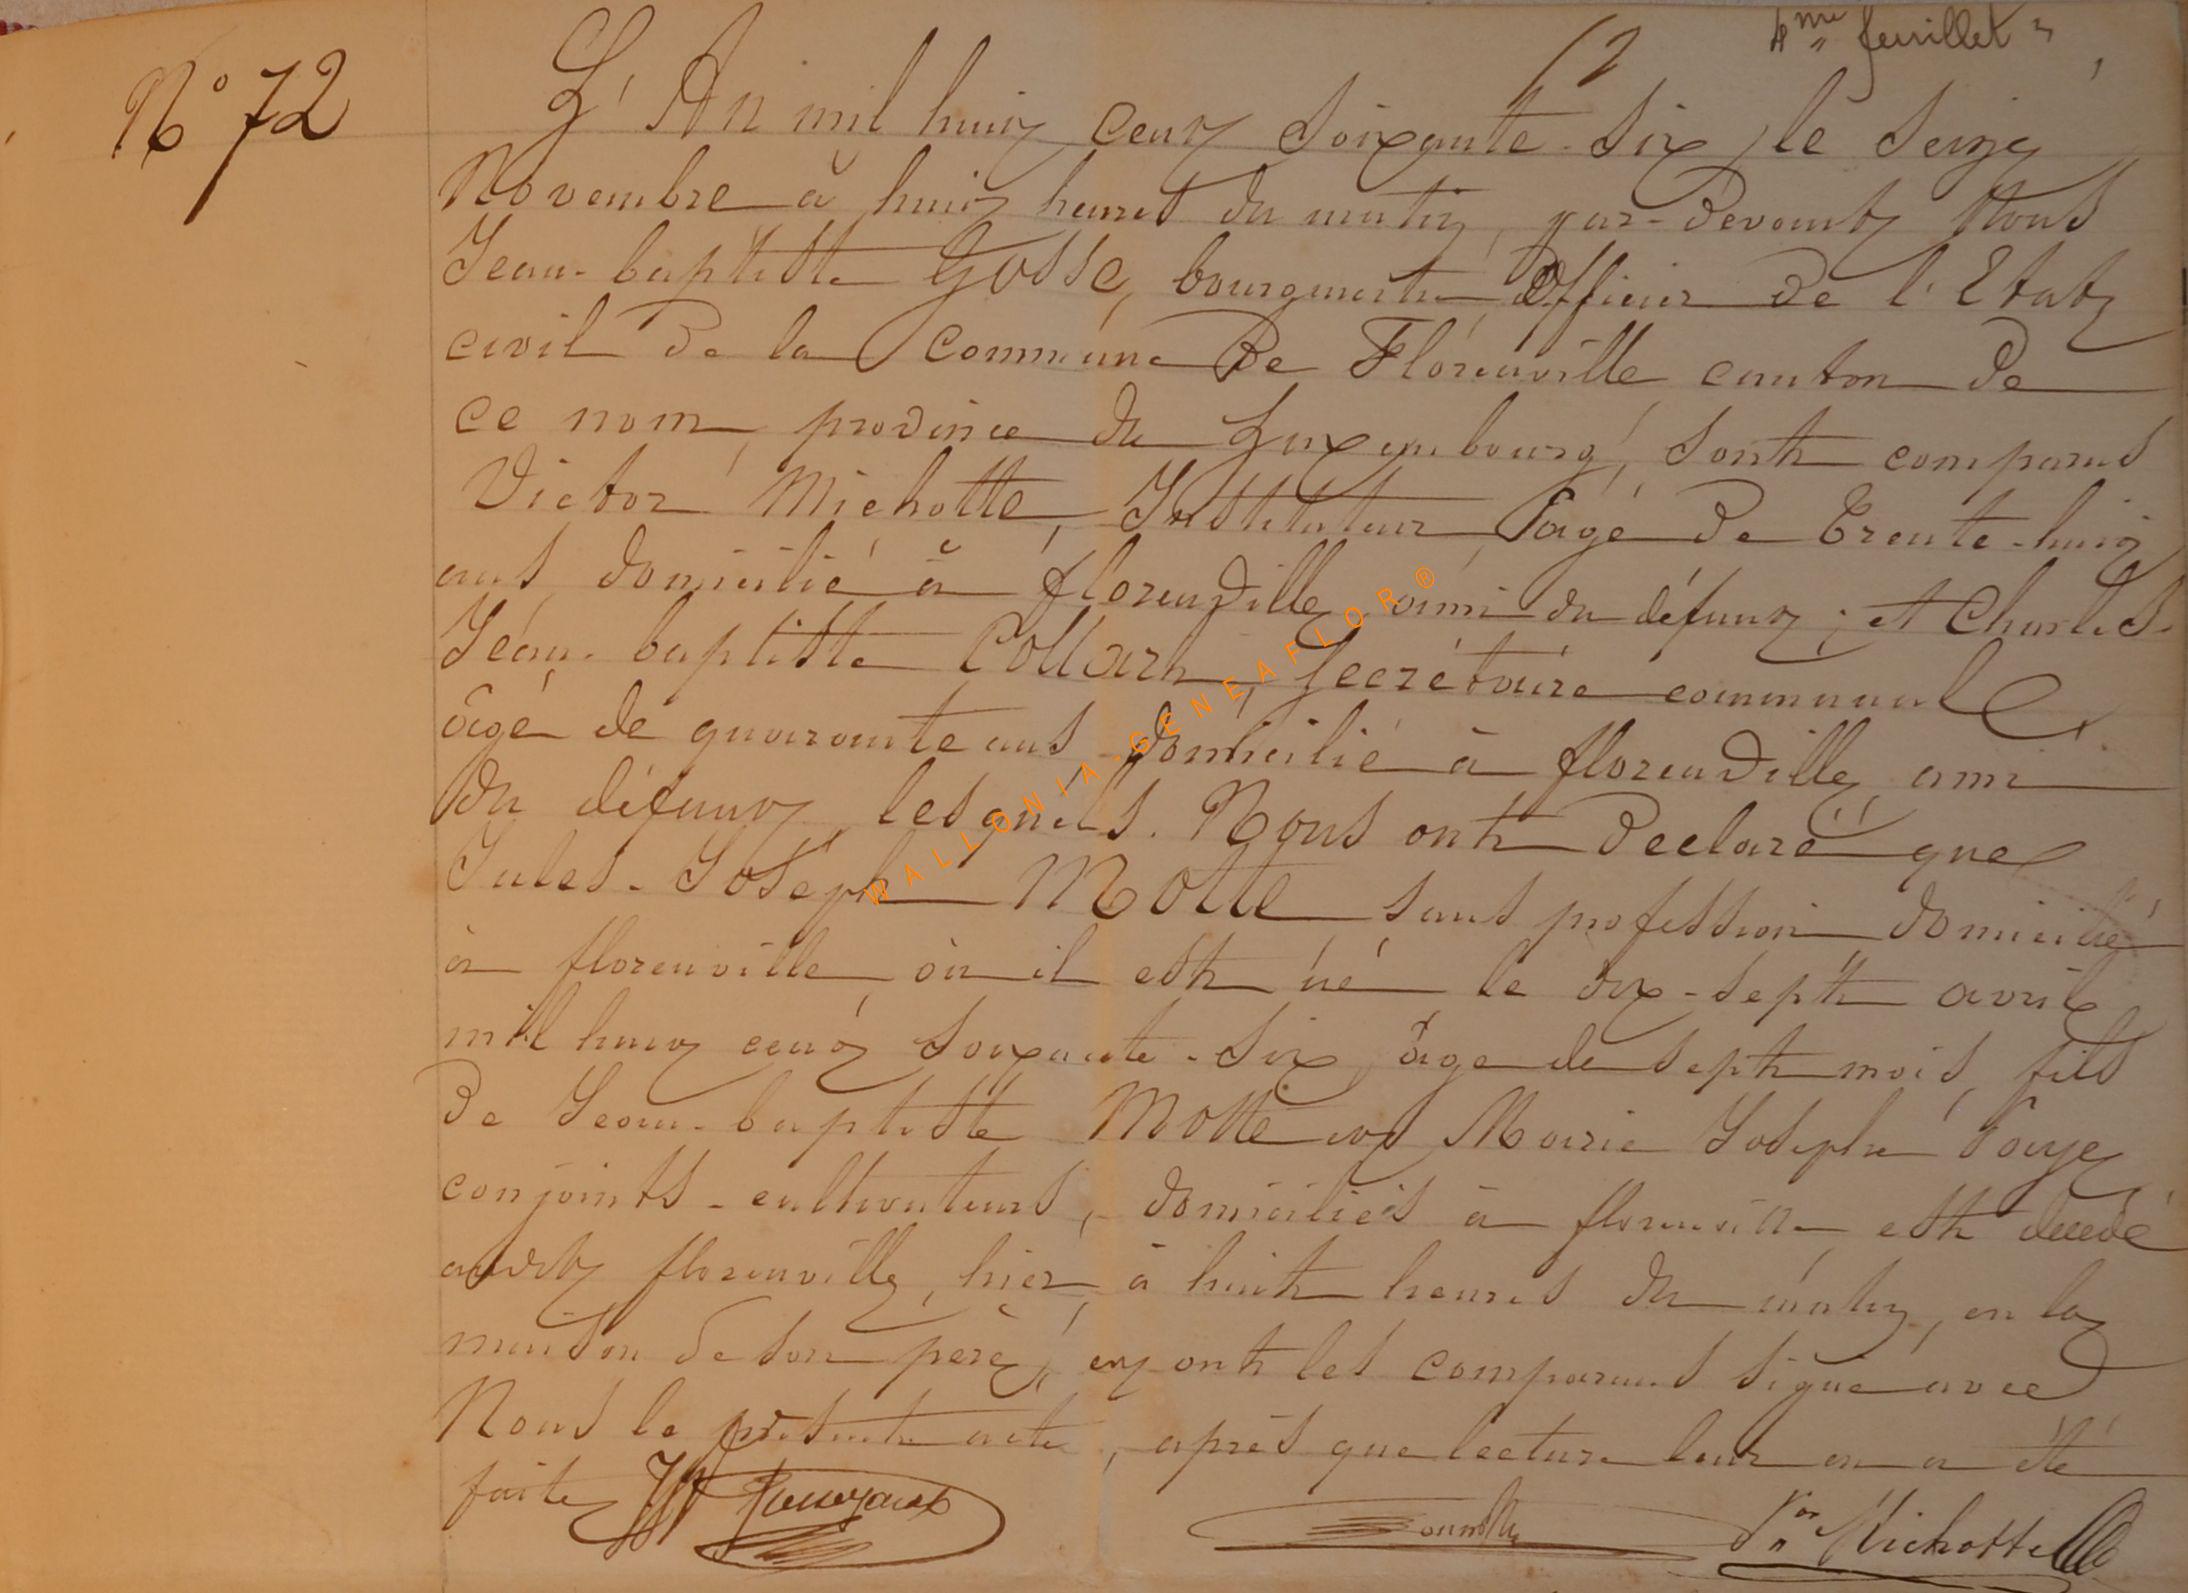 4me feuillet
12
N° 72
L'An mil huit cent soixante-six, le seize
Novembre à huit heures du matin, par-devant Nous
Jean-baptiste Gosse, bourgmestre Officier de l'Etat
civil de la commune de Florenville canton de
ce nom, province du Luxembourg, sont comparus
Victor Michotte, Instituteur, âgé de trente-huit
ans, domicilié à florenville, ami du défunt; et Charles-
Jean-baptiste Collart, Secrétaire communal
âgé de quarante ans, domicilié à florenville, ami
du défunt, lesquels Nous ont déclaré que
Jules-Joseph Motte sans profession domicilié
à florenville, où il est né le dix-sept avril
mil huit cent soixante-six, âgé de sept mois, fils
de Jean-baptiste Motte et Marie Josephe
conjoints-cultivateurs, domiciliés à florenville est décédé
audit florenville, hier, à huit heures du matin, en la
maison de son père, et ont les comparus signé avec
Nous le présent acte, après que lecture leur en a été
faite
Vor Michotte
WALLONIA-GENEAFLOR®